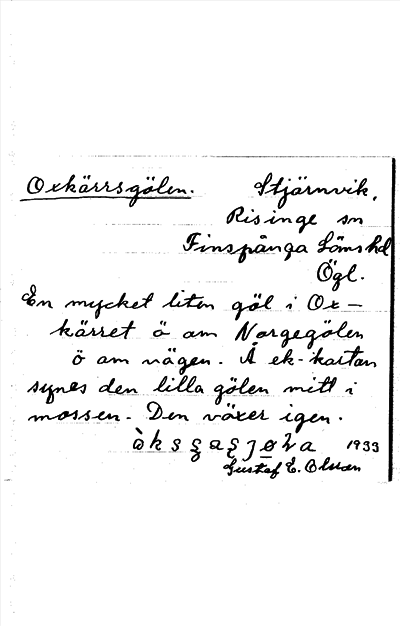 Oxkärrsgölen. Stjärnvik,
Risinge sn
Finspånga Läns hd
Ögl.
En mycket liten göl i Ox-
kärret ö om Norgegölen
ö om vägen. Å ek-kartan
synes den lilla gölen mitt i
mossen. Den växer igen.
1933
Gustaf E. Olsson